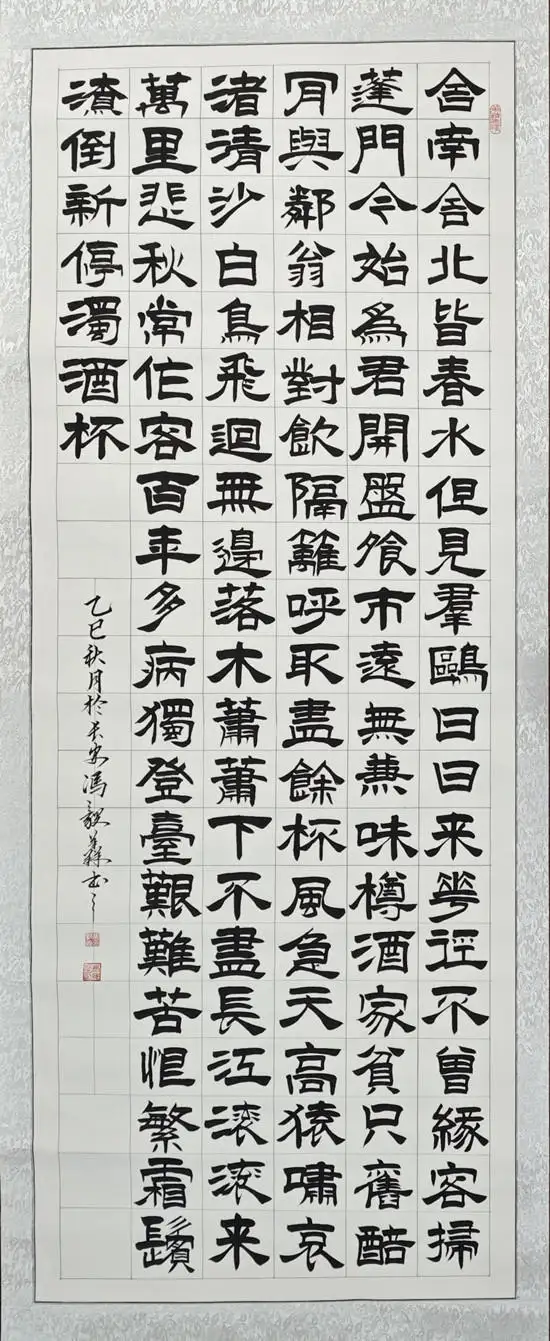 舍南舍北皆春水但見羣鷗日日来花徑不曾緣客掃
蓬門今始為君開盤飧市遠無兼味樽酒家貧只舊醅
肎與鄰翁相對飲隔籬呼取盡餘杯風急天高猿嘯哀
渚清沙白鳥飛迴無邊落木蕭蕭下不盡長江滚滚来
萬里悲秋常作客百年多病獨登臺艱難苦恨繁霜鬢
潦倒新停濁酒杯
乙巳秋月於长安冯毅森书之